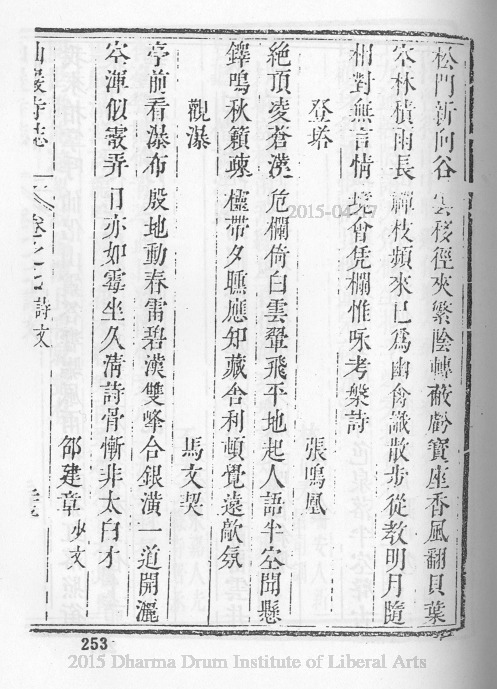 松門新向谷雲移徑夾繁陰轉蔽虧寶座香風翻貝葉
空林積雨長禪枝頻來已為幽禽識散步從教明月隨
相對無言情境會凭欄惟咏考槃詩
登塔 張鳴鳳
絶頂凌蒼漭危欄倚白雲翬飛平地起人語半空聞懸
鐸鳴秋籟疎櫺帶夕曛應知藏舍利頓覺遠歊氛
觀瀑 馬文契
亭前看瀑布殷地動春雷碧漢雙峰合銀潢一道開灑
空渾似霰奔日亦如霉坐久清詩骨慚非太白才
邵建章少文
仙巖寺志 卷之七詩文
253
2015-04-17
2015 Dharma Drum Institute of Liberal Arts